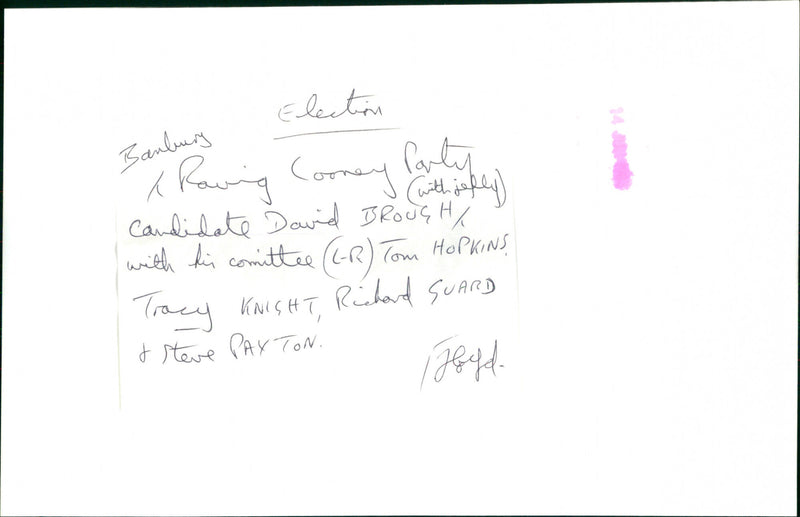 Election
Banbury
Raving Looney Party
(with jelly)
candidate David BROUGH
with his comittee (L-R) Tom HOPKINS,
Tracy KNIGHT, Richard GUARD
& Steve PAXTON.